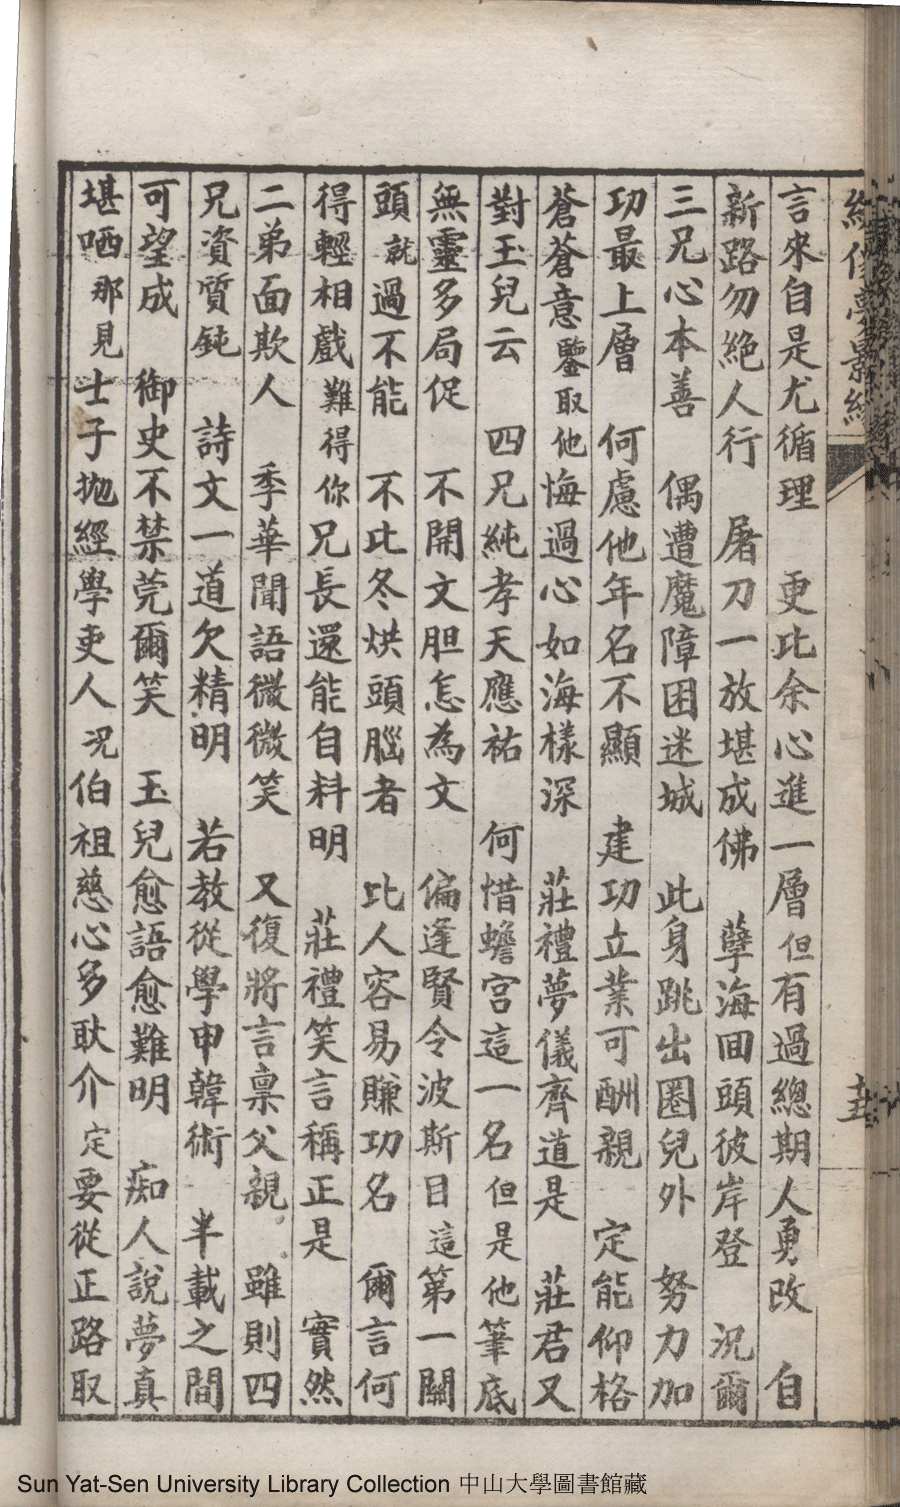 言來自是尤循理　更比余心進一層但有過總期人勇改　自
新路勿絕人行　屠刀一放堪成佛　孽海回頭彼岸登　況爾
三兄心本善　偶遭魔障困迷城　此身跳出圈兒外　努力加
功最上層　何慮他年名不顯　建功立業可酬親　定能仰格
蒼蒼意鑒取他悔過心如海樣深　莊禮夢儀齊道是　莊君又
對玉兒云　四兄純孝天應祐　何惜蟾宮這一名但是他筆底
無靈多局促　不開文胆怎為文　偏逢賢令波斯目這第一關
頭就過不能　不比冬烘頭腦者　比人容易賺功名　爾言何
得輕相戲難得你兄長還能自料明　莊禮笑言稱正是　實然
二弟面欺人　季華聞語微微笑　又復將言禀父親　雖則四
兄資質鈍　詩文一道欠精明　若教從學申韓術　半載之間
可望成　御史不禁莞爾笑　玉兒愈語愈難明　痴人說夢真
堪哂那見士子拋經學吏人况伯祖慈心多耿介定要從正路取
Sun Yat-Sen University Library Collection 中山大學圖書館藏